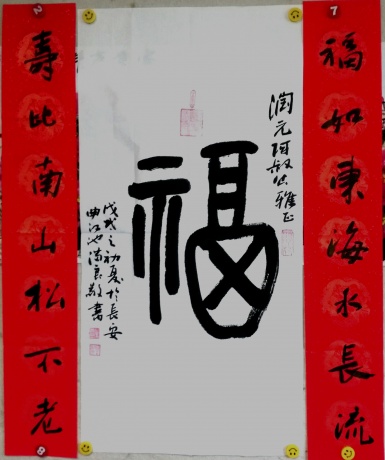 福如東海水長流
福
壽比南山松不老
润元阿叔公雅正
戊戌之初夏於長安
曲江池
敬書
7
2
8